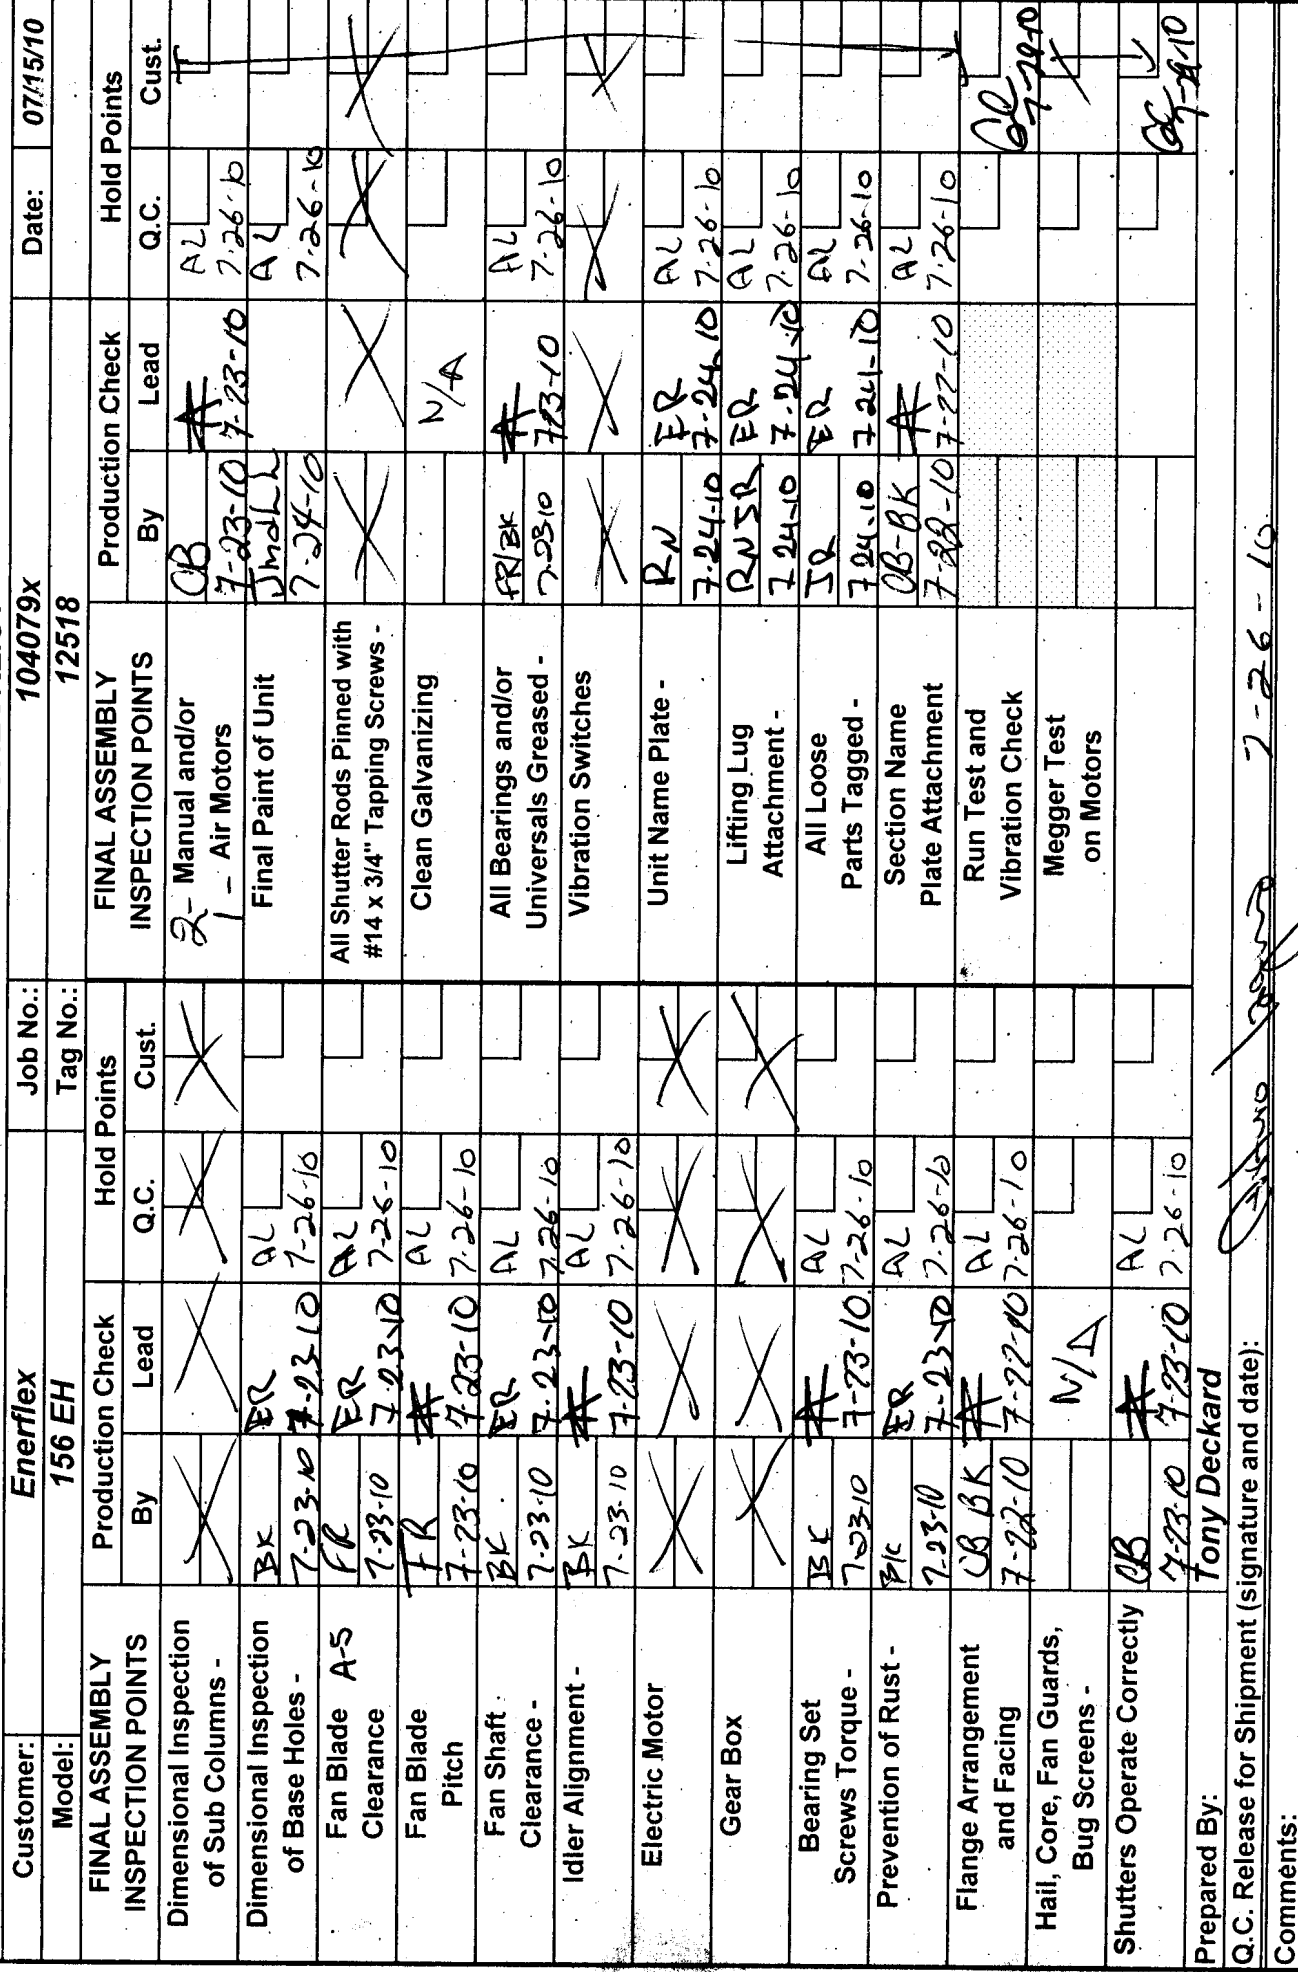 Customer: Enerflex Job No.: 104079x Date: 07/15/10
Model: 156 EH Tag No.: 12518
FINAL ASSEMBLY INSPECTION POINTS Production Check Hold Points
By Lead Q.C. Cust.
Dimensional Inspection
of Sub Columns -
Dimensional Inspection BK ER AL
of Base Holes - 7-23-10 7-23-10 7-26-10
Fan Blade A-5 FR ER AL
Clearance 7-23-10 7-23-10 7-26-10
Fan Blade FR AL
Pitch 7-23-10 7-23-10 7-26-10
Fan Shaft BK ER AL
Clearance - 7-23-10 7-23-10 7-26-10
Idler Alignment - BK AL
7-23-10 7-23-10 7-26-10
Electric Motor
Gear Box
Bearing Set BK AL
Screws Torque - 7-23-10 7-23-10 7-26-10
Prevention of Rust - BK ER AL
7-23-10 7-23-10 7-26-10
Flange Arrangement OB BK AL
and Facing 7-22-10 7-22-10 7-26-10
Hail, Core, Fan Guards, N/A
Bug Screens -
Shutters Operate Correctly OB AL
7-23-10 7-23-10 7-26-10
FINAL ASSEMBLY INSPECTION POINTS Production Check Hold Points
By Lead Q.C. Cust.
2- Manual and/or OB AL
1 - Air Motors 7-23-10 7-23-10 7-26-10
Final Paint of Unit AL
7-24-10 7-26-10
All Shutter Rods Pinned with
#14 x 3/4" Tapping Screws -
Clean Galvanizing N/A
All Bearings and/or FR/BK AL
Universals Greased - 7-23-10 7-23-10 7-26-10
Vibration Switches
Unit Name Plate - RN ER AL
7-24-10 7-24-10 7-26-10
Lifting Lug RN JR ER AL
Attachment - 7-24-10 7-24-10 7-26-10
All Loose JR ER AL
Parts Tagged - 7-24-10 7-24-10 7-26-10
Section Name OB-BK AL
Plate Attachment 7-22-10 7-22-10 7-26-10
Run Test and
Vibration Check 7-29-10
Megger Test
on Motors
7-29-10
Prepared By: Tony Deckard
Q.C. Release for Shipment (signature and date): 7-26-10
Comments: